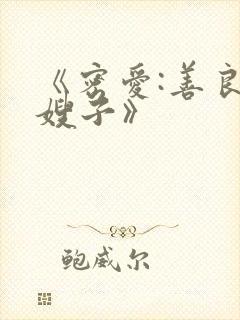 《密爱:善良
嫂子》
鲍威尔